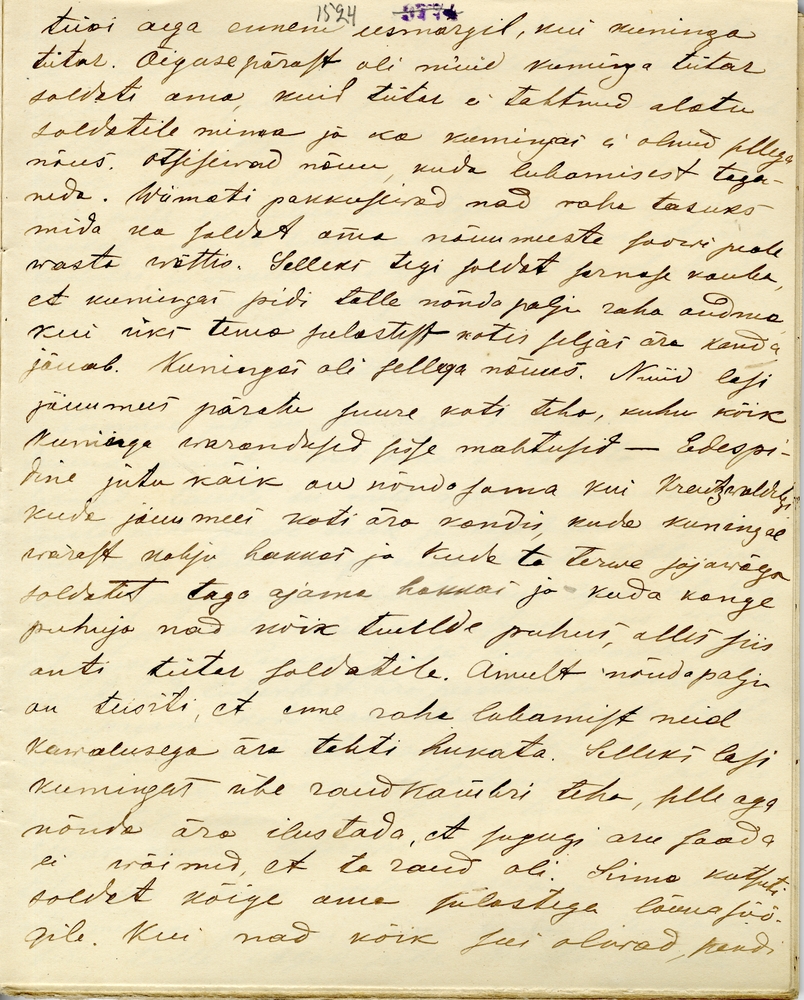 1524
tüki aega ennem eesmärgil, kui kuninga
tütar. Õigusepärast oli nüüd kuninga tütar
soldati oma, kuid tütar ei tahtnud alatu
soldatile minna ja ka kuningas ei olnud sellega
nõus. Otsisiwad nõuu, kuda lubamisest taga-
neda. Wiimati pakkusiwad nad raha tasuks
mida ka soldat oma nõuumeeste soowi peale
wasta wõttis. Selleks tegi soldat sarnase kauba,
et kuningas pidi talle nõnda palju raha andma
kui üks tema sulastest kotis seljas ära kanda
jõuab. Kuningas oli sellega nõuus. Nüüd lasi
jõuumees päratu suure koti teha, kuhu kõik
kuninga warandused sisse mahtusid — Edespi-
dine jutu käik on nõndasama kui Kreutzwaldilgi
kuda jõuumees koti ära kandis, kuda kuningal
warast kahju hakkas ja kuda ta terwe sõjawäega
soldatit taga ajama hakkas ja kuda kange
puhuja nad kõik tuulde puhus, alles siis
anti tütar soldatile. Ainult nõndapalju
on teisiti, et enne raha lubamist neid
kawalusega ära tahti hukata. Selleks lasi
kuningas ühe raudkambri teha, selle aga
nõnda ära ilustada, et sugugi aru saada
ei wõinud, et ta raud oli. Sinna kutsuti
soldat kõige oma sulastega lõunasöö-
gile. Kui nad kõik sees oliwad, pandi